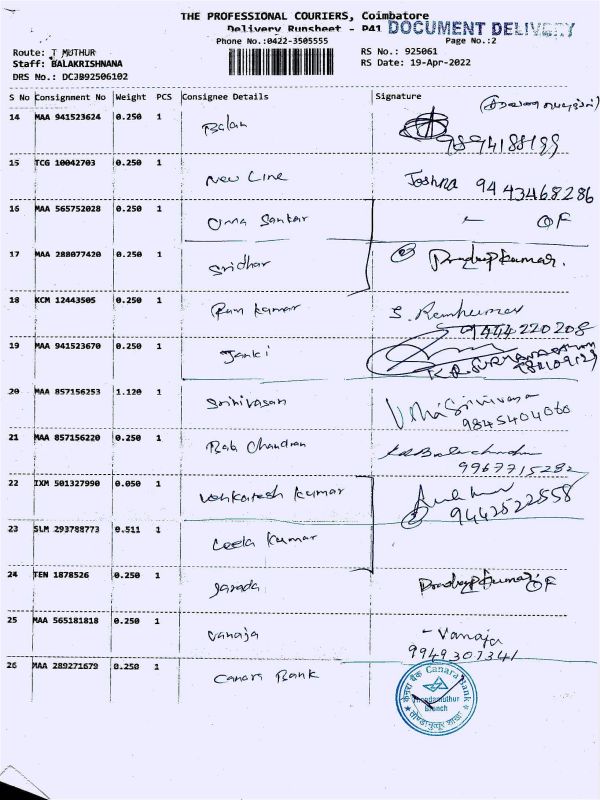 THE PROFESSIONAL COURIERS, Coimbatore
Delivery Runsheet - P41 DOCUMENT DELIVERY
Phone No.:0422-3505555 Page No.:2
Route: T MUTHUR RS No.: 925061
Staff: BALAKRISHNANA RS Date: 19-Apr-2022
DRS No.: DCJB92506102
S No Consignment No Weight PCS Consignee Details Signature
14 MAA 941523624 0.250 1 Balan
9894188199
15 TCG 10042703 0.250 1 New Line Joshna 9443468286
16 MAA 565752028 0.250 1 Uma Sankar - OF
17 MAA 288077420 0.250 1 Sridhar 2 Pradeepkumar.
18 KCM 12443505 0.250 1 Ram kumar S. Ramkumar
9444220208
19 MAA 941523670 0.250 1 Janki
20 MAA 857156253 1.120 1 Srinivasan Uma Srinivasa
9845404060
21 MAA 857156220 0.250 1 Bala Chandran
9967715282
22 IXM 501327990 0.050 1 Venkatesh kumar
2 9442522558
23 SLM 293788773 0.511 1 Leela kumar
24 TEN 1878526 0.250 1 Pradeepkumar OF
25 MAA 565181818 0.250 1 Vanaja - Vanaja
9949307341
26 MAA 289271679 0.250 1 Canara Bank
केनरा बैंक Canara Bank
Thondamuthur
Branch